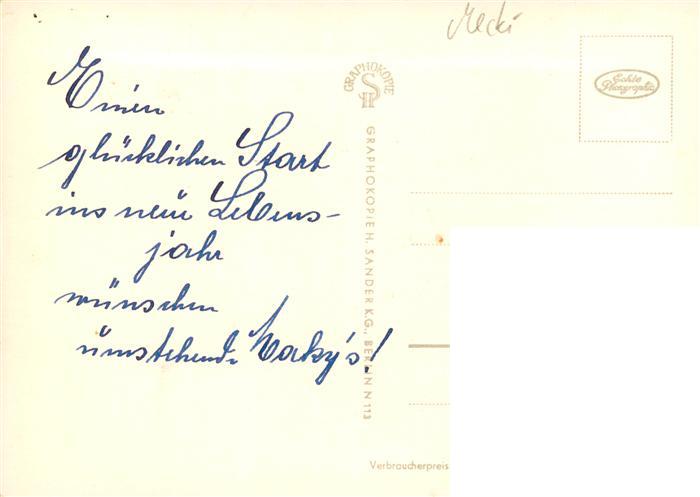 Mecki
Einen
glücklichen Start
ins neue Lebens-
jahr
wünschen
umstehende Maky's!
GRAPHOKOPIE
SH
GRAPHOKOPIE H. SANDER K.G., BERLIN N 113
Echte
Photographie
Verbraucherpreis